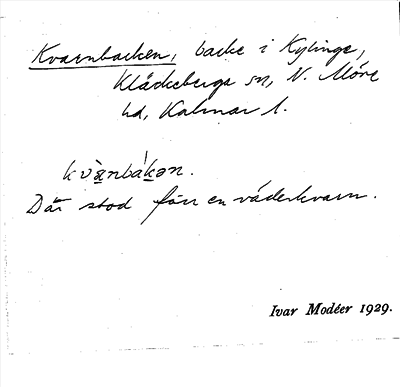 Kvarnbacken, backe i Kylinge,
Kläckeberga sn, N. Möre
hd, Kalmar l.
kvànbákən.
Där stod förr en väderkvarn.
Ivar Modéer 1929.